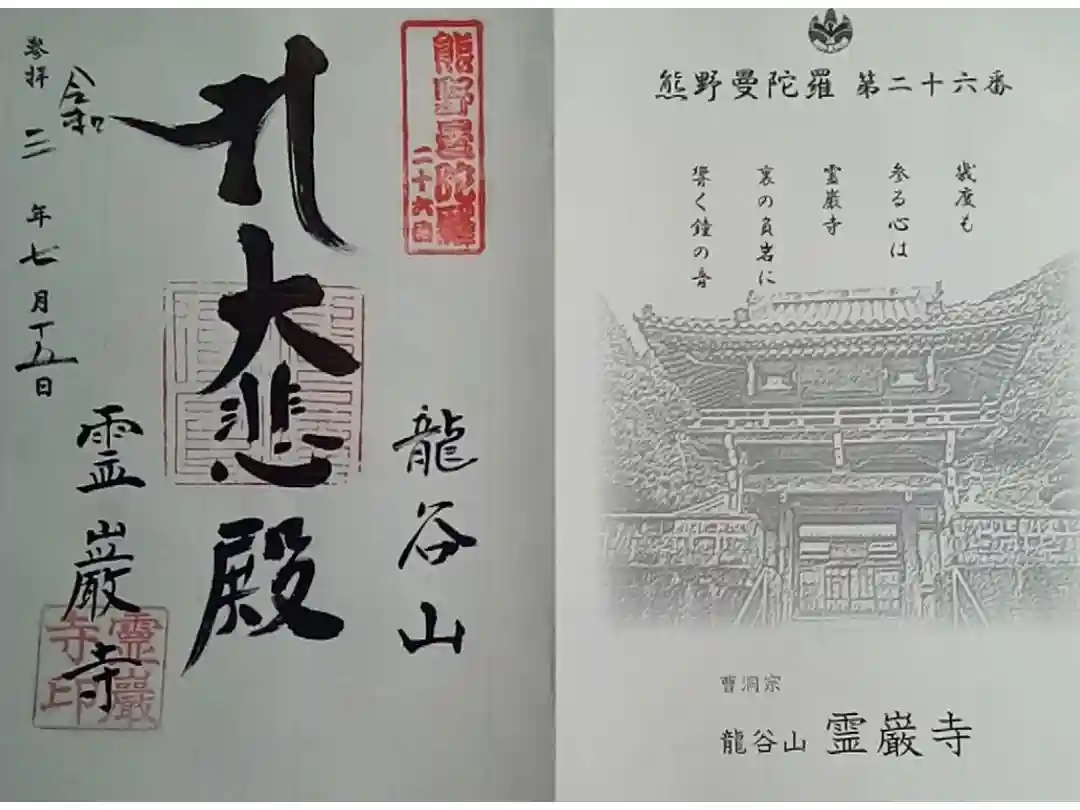 熊野曼陀羅 第二十六番
幾度も
参る心は
霊巌寺
裏の負岩に
響く鐘の音
曹洞宗
龍谷山 霊巌寺
熊野曼陀羅
二十六番
龍谷山
大悲殿
霊巌寺
霊巌寺印
令和
参拝 三年七月十五日